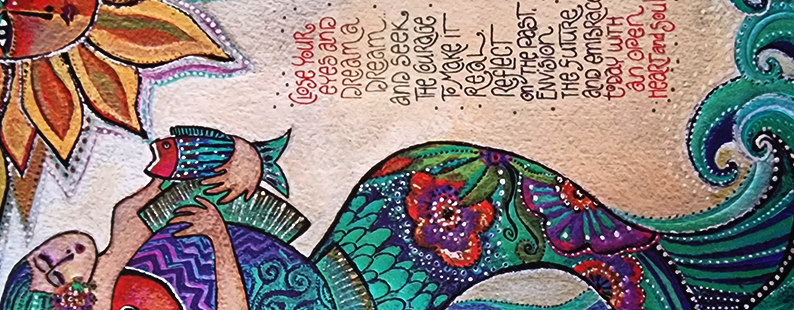 Close your
eyes and
dream a
dream.
and seek
the courage
to make it
real
reflect
on the past.
envision
the future
and embrace
today with
an open
heart and soul